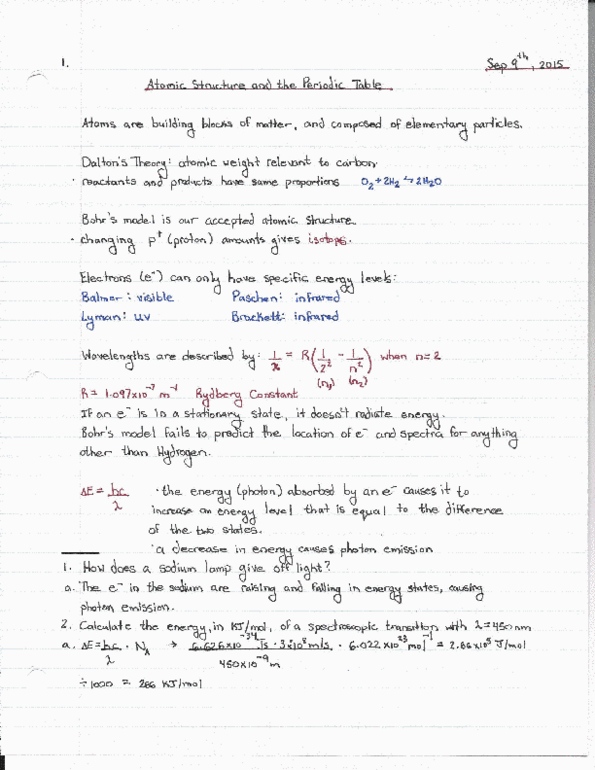 1.
Sep 9th, 2015
Atomic Structure and the Periodic Table
Atoms are building blocks of matter, and composed of elementary particles.
Dalton's Theory: atomic weight relevant to carbon
· reactants and products have same proportions O₂ + 2H₂ → 2H₂O
Bohr's model is our accepted atomic structure.
· changing p⁺ (proton) amounts gives isotops.
Electrons (e⁻) can only have specific energy levels:
Balmer: visible Paschen: infrared
Lyman: uv Brackett: infrared
Wavelengths are described by: 1/λ = R(1/2² - 1/n²) when n=2
(n₁) (n₂)
R = 1.097x10⁻⁷ m⁻¹ Rydberg Constant
If an e⁻ is in a stationary state, it doesn't radiate energy.
Bohr's model fails to predict the location of e⁻ and spectra for anything
other than Hydrogen.
ΔE = hc/λ · the energy (photon) absorbed by an e⁻ causes it to
increase an energy level that is equal to the difference
of the two states.
· a decrease in energy causes photon emission
1. How does a sodium lamp give off light?
a. The e⁻ in the sodium are raising and falling in energy states, causing
photon emission.
2. Calculate the energy, in KJ/mol, of a spectroscopic transition with λ=450nm
a. ΔE = hc/λ · Nₐ → 6.626x10⁻³⁴ Js · 3x10⁸ m/s / 450x10⁻⁹ m · 6.022x10²³ mol⁻¹ = 2.66x10⁵ J/mol
÷1000 = 266 KJ/mol